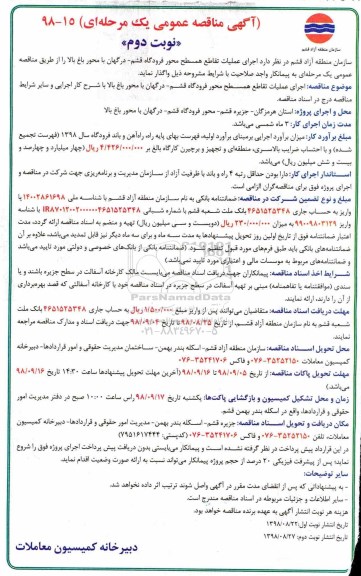 (آگهی مناقصه عمومی یک مرحله‌ای) ۱۵-۹۸
«نوبت دوم»
سازمان منطقه آزاد قشم
سازمان منطقه آزاد قشم در نظر دارد اجرای عملیات تقاطع همسطح محور فرودگاه قشم- درگهان با محور باغ بالا را از طریق مناقصه
عمومی یک مرحله‌ای به پیمانکار واجد صلاحیت با شرایط مشروحه ذیل واگذار نماید.
موضوع مناقصه: اجرای عملیات تقاطع همسطح محور فرودگاه قشم- درگهان با محور باغ بالا با شرح کار اجرایی و سایر شرایط
مناقصه درج در اسناد مناقصه.
محل و اجرای پروژه: استان هرمزگان- جزیره قشم- محور فرودگاه قشم- درگهان با محور باغ بالا
مدت زمان اجرای کار: ۳ ماه شمسی می‌باشد.
مبلغ برآورد کار: میزان برآورد اجرایی برمبنای برآورد اولیه، فهرست بهای پایه راه، راه‌آهن و باند فرودگاه سال ۱۳۹۸ (فهرست تجمیع
شده) و با احتساب ضرایب بالاسری، منطقه‌ای و تجهیز و برچیدن کارگاه بالغ بر ۴/۴۲۶/۰۰۰/۰۰۰ ریال (چهار میلیارد و چهارصد و
بیست و شش میلیون ریال) می‌باشد.
استاندارد اجرای کار: دارا بودن حداقل رتبه ۴ راه و باند با ظرفیت آزاد از سازمان مدیریت و برنامه‌ریزی جهت شرکت در مناقصه و
اجرای پروژه فوق برای مناقصه‌گران الزامی است.
مبلغ و نوع تضمین شرکت در مناقصه: ضمانتنامه بانکی به نام سازمان منطقه آزاد قشم با شناسه ملی ۱۴۰۰۲۸۶۱۶۹۸ یا
واریز به حساب جاری ۴۶۵۱۵۲۵۳۴۸ بانک ملت شعبه قشم با شماره شبا
واریز به میزان ۲۳۰/۰۰۰/۰۰۰ ریال (دویست و سی میلیون ریال) تهیه و منضم به اسناد مناقصه ارائه گردد، مدت
اعتبار ضمانتنامه فوق از تاریخ اولین روز تحویل پیشنهادها به مدت سه ماه و برای سه ماه دیگر نیز قابل تمدید می‌باشد، علاوه بر آن
ضمانتنامه‌های بانکی باید طبق فرم‌های مورد قبول تنظیم شود (ضمانتنامه بانکی از بانک‌های خصوصی و دولتی مورد تایید می‌باشد
و ضمانتنامه‌های مربوط به موسسات مالی و اعتباری مورد تایید نمی‌باشد)
شرایط اخذ اسناد مناقصه: پیمانکاران جهت دریافت اسناد مناقصه می‌بایست مالک کارخانه آسفالت در سطح جزیره باشند و یا
سندی (موافقتنامه یا تفاهمنامه) مبنی بر تهیه آسفالت در سطح جزیره در اسناد مناقصه خود با کارخانه آسفالتی که قصد بهره‌برداری
از آن را دارند، ارائه نمایند.
مهلت دریافت اسناد مناقصه: متقاضیان می‌توانند پس از واریز مبلغ ۱/۵۰۰/۰۰۰ ریال به حساب جاری ۴۶۵۱۵۲۵۳۴۸ بانک ملت
شعبه قشم به نام سازمان منطقه آزاد قشم، از تاریخ ۹۸/۰۸/۲۵ تا تاریخ ۹۸/۰۹/۰۴ جهت دریافت اسناد و مدارک مناقصه مراجعه
نمایند.
محل تحویل اسناد مناقصه: سازمان منطقه آزاد قشم- اسکله بندر بهمن- ساختمان مدیریت حقوقی و امور قراردادها- دبیرخانه
کمیسیون معاملات ۳۵۲۵۲۱۵۰-۰۷۶ و فاکس ۳۵۲۴۱۷۰۶-۰۷۶
مهلت تحویل پاکات مناقصه: از تاریخ ۹۸/۰۹/۰۵ تا تاریخ ۹۸/۰۹/۱۶ (آخرین مهلت تحویل پیشنهادها ساعت ۱۴:۳۰ تاریخ ۹۸/۰۹/۱۶
می‌باشد)
زمان و محل تشکیل کمیسیون و بازگشایی پاکت‌ها: یکشنبه تاریخ ۹۸/۰۹/۱۷ راس ساعت ۱۰:۰۰ صبح در دفتر مدیریت امور
حقوقی و قراردادها، واقع در اسکله بندر بهمن قشم.
مکان دریافت و تحویل اسناد مناقصه: جزیره قشم- اسکله بندر بهمن- مدیریت امور حقوقی و قراردادها- دبیرخانه کمیسیون
معاملات، تلفن ۳۵۲۵۲۱۵۰-۰۷۶ و فاکس ۳۵۲۴۱۷۰۶-۰۷۶ (کدپستی: ۷۹۵۱۶۱۷۴۴۴)
در این قرارداد پیش پرداخت در نظر گرفته نشده است و پیمانکار می‌بایستی بدون دریافت پیش پرداخت اجرای پروژه فوق را شروع
نماید؛ پس از پیشرفت فیزیکی ۲۰ درصد از حجم پروژه پیمانکار می‌تواند نسبت به ارائه صورت وضعیت اقدام نماید.
سایر توضیحات:
- به پیشنهاداتی که پس از انقضای مدت مقرر در آگهی واصل شوند ترتیب اثر داده نخواهد شد.
- سایر اطلاعات و جزئیات مربوطه در اسناد مناقصه مندرج است.
هزینه هر نوبت انتشار آگهی به عهده برنده مناقصه خواهد بود.
تاریخ انتشار نوبت اول: ۱۳۹۸/۰۸/۲۲
تاریخ انتشار نوبت دوم: ۱۳۹۸/۰۸/۲۷
دبیرخانه کمیسیون معاملات
ParsNamadData